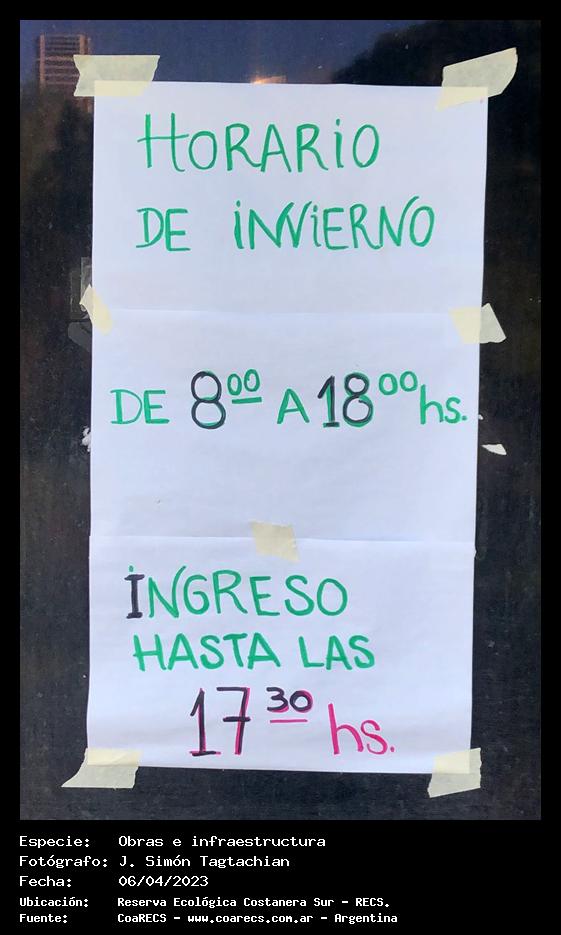 HORARIO
DE INVIERNO
DE 8⁰⁰ A 18⁰⁰ hs.
INGRESO
HASTA LAS
17³⁰ hs.
Especie: Obras e infraestructura
Fotógrafo: J. Simón Tagtachian
Fecha: 06/04/2023
Ubicación: Reserva Ecológica Costanera Sur - RECS.
Fuente: CoaRECS - www.coarecs.com.ar - Argentina